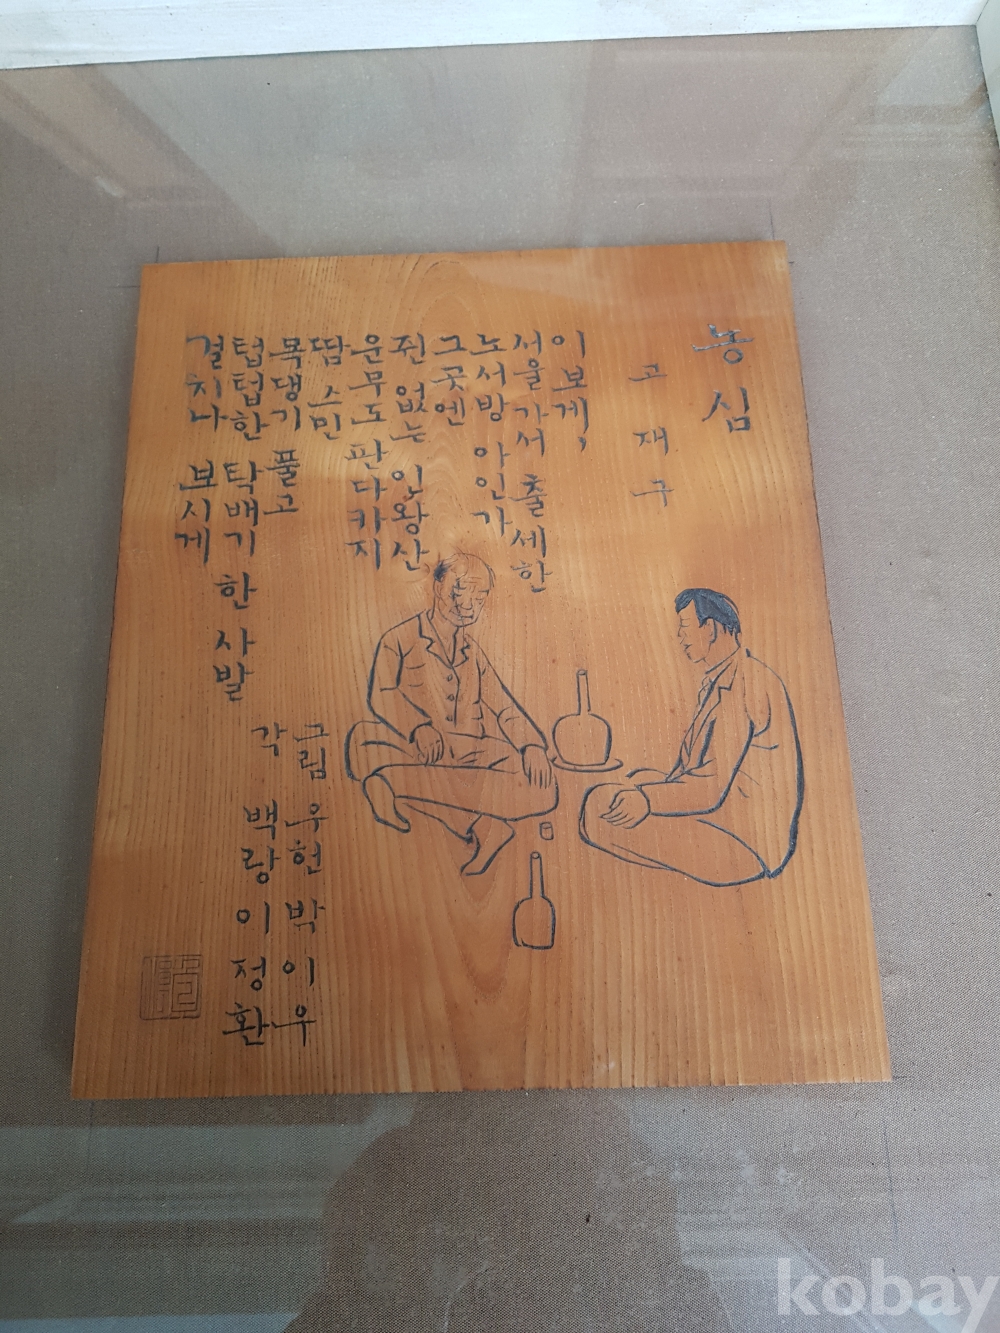 농심
고재구
이보게,
서울 가서 출세한
노서방 아인가
그곳엔
쥔 없는 인왕산
운무도 판다카지
땀 스민
목댕기 풀고
텁텁한 탁배기 한 사발
걸치나 보시게
그림 우현 박이우
각 백랑 이정환
kobay